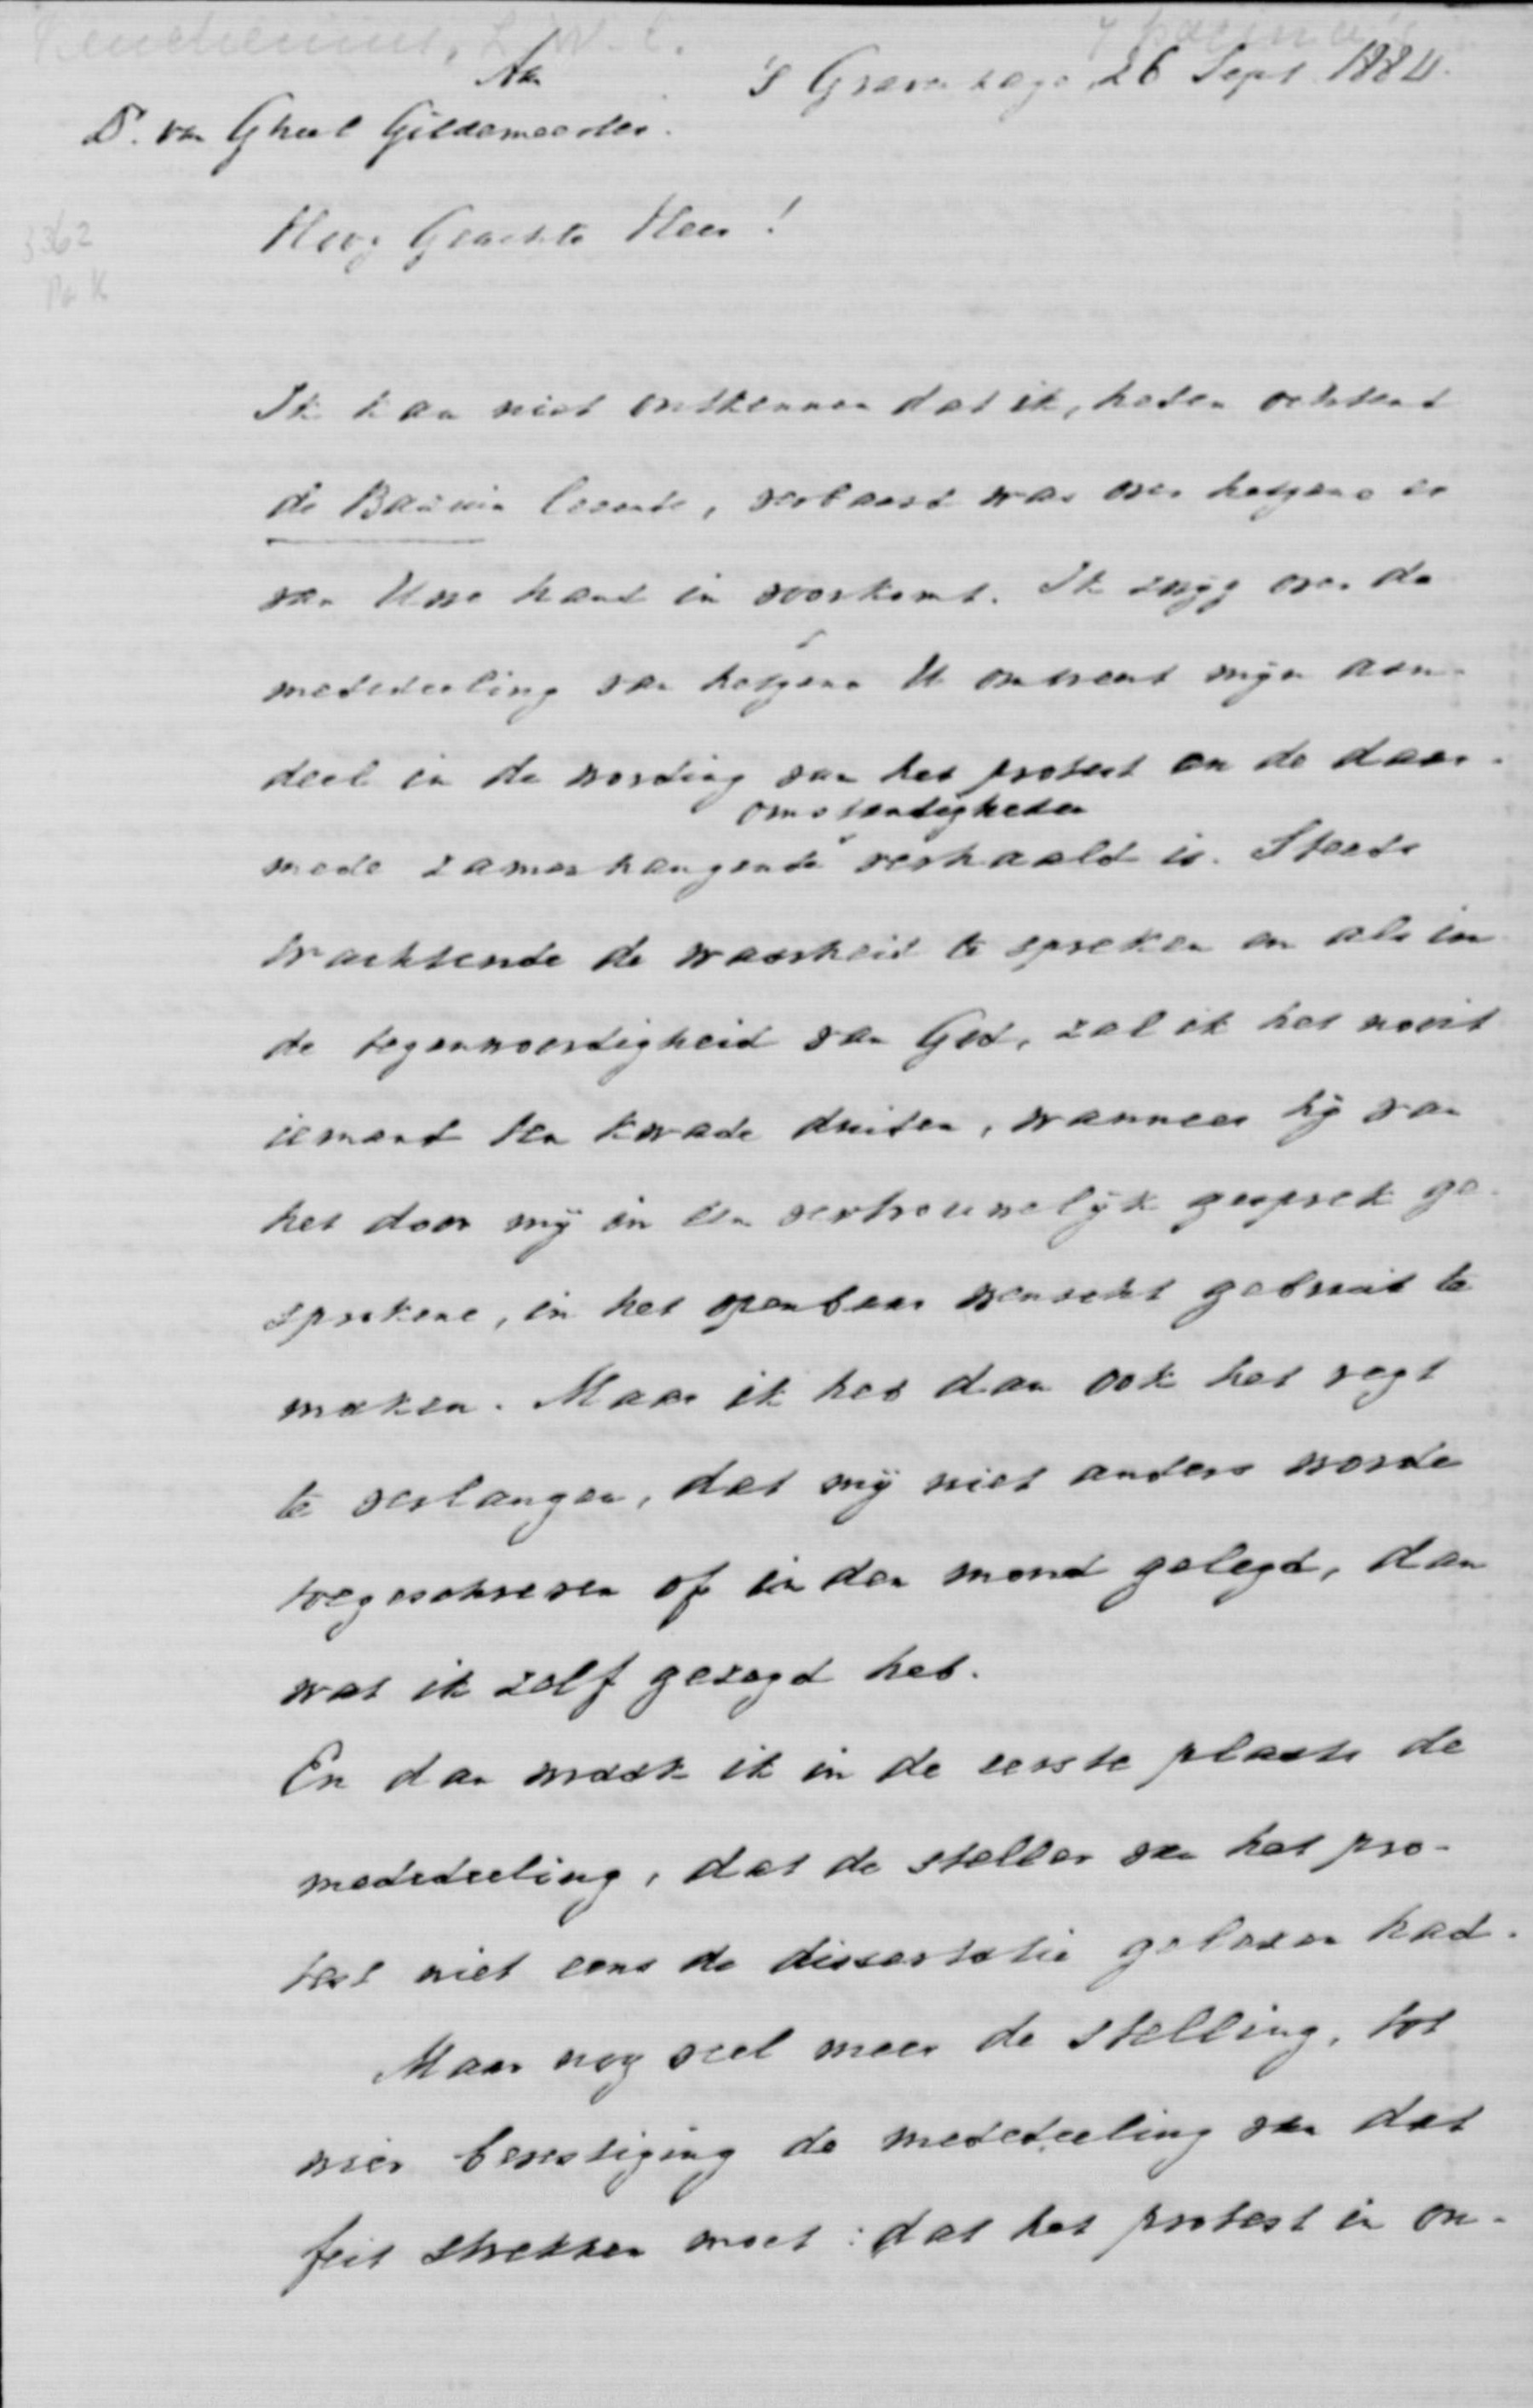 Keuchenius, L. W. C.
4 pagina's
Aan
's Gravenhage, 26 Sept 1884.
Dr. van Gheel Gildemeester.
3362
Pak
Hoog Geachte Heer!
Ik kan niet ontkennen dat ik, heden ochtend
de Bazuin lezende, verbaasd was over hetgene er
van Uwe hand in voorkomt. Ik zwijg over de
mededeeling van hetgene U omtrent mijn aan-
deel in de wording van het protest en de daar-
omstandigheden
mede zamenhangende verhaald is. Steeds
trachtende de waarheid te spreken en als in
de tegenwoordigheid van God, zal ik het nooit
iemand ten kwade duiden, wanneer hij van
het door mij in een vertrouwelijk gesprek ge-
sprokene, in het openbaar wenscht gebruik te
maken. Maar ik heb dan ook het regt
te verlangen, dat mij niet anders worde
toegeschreven of in den mond gelegd, dan
wat ik zelf gezegd heb.
En dan wraak ik in de eerste plaats de
mededeeling, dat de steller van het pro-
test niet eens de dissertatie gelezen had.
Maar nog veel meer de stelling, tot
wier bevestiging de mededeeling van dat
feit strekken moet: dat het protest in on-